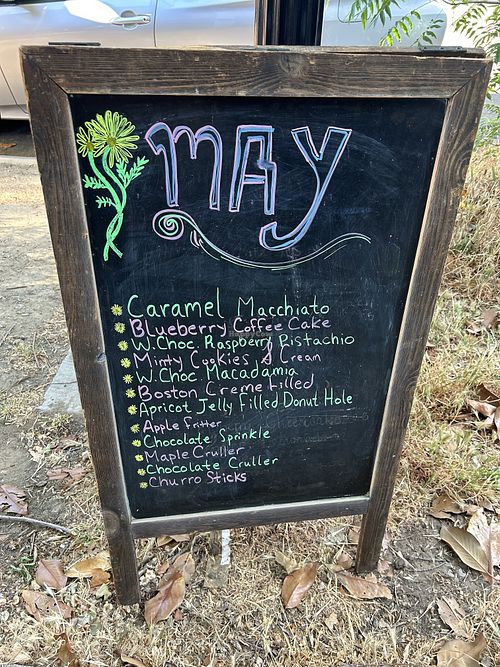 MAY
Caramel Macchiato
Blueberry Coffee Cake
W. Choc. Raspberry Pistachio
Minty Cookies & Cream
W. Choc. Macadamia
Boston Creme Filled
Apricot Jelly Filled Donut Hole
Apple Fritter
Chocolate Sprinkle
Maple Cruller
Chocolate Cruller
Churro Sticks